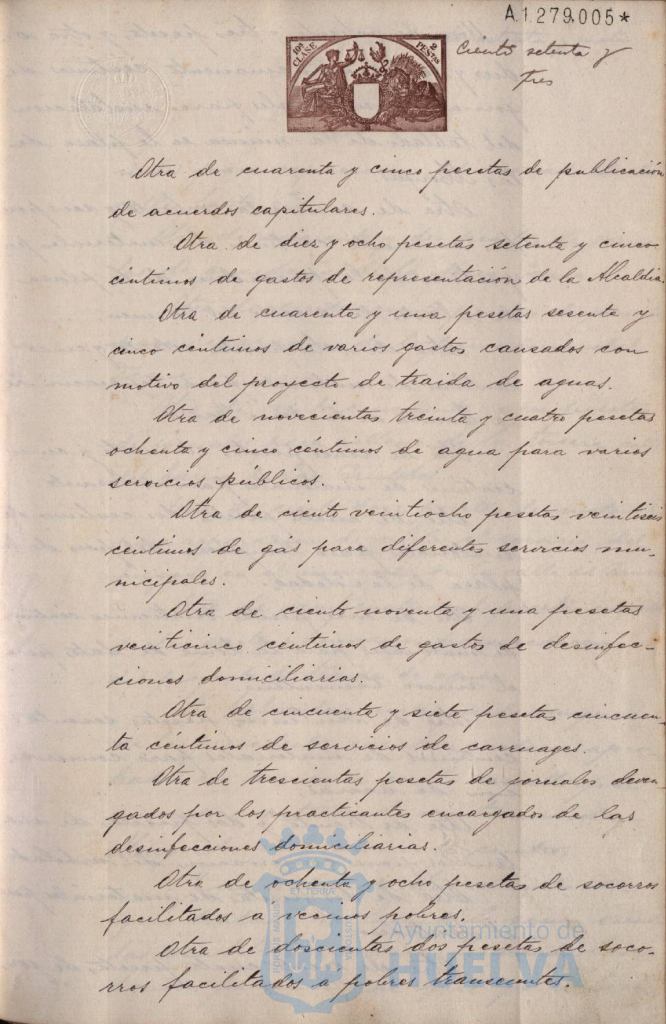 A.1.279.005*
10ª CLASE
2 PESTAS
Ciento setenta y
tres
Otra de cuarenta y cinco pesetas de publicación
de acuerdos capitulares.
Otra de diez y ocho pesetas setenta y cinco
céntimos de gastos de representación de la Alcaldia.
Otra de cuarenta y una pesetas sesenta y
cinco céntimos de varios gastos causados con
motivo del proyecto de traida de aguas.
Otra de novecientas treinta y cuatro pesetas
ochenta y cinco céntimos de agua para varios
servicios públicos.
Otra de ciento veintiocho pesetas veintiseis
céntimos de gás para diferentes servicios mu-
nicipales.
Otra de ciento noventa y una pesetas
veinticinco céntimos de gastos de desinfec-
ciones domiciliarias.
Otra de cincuenta y siete pesetas cincuen-
ta céntimos de servicios de carruages.
Otra de trescientas pesetas de jornales deven
gados por los practicantes encargados de las
desinfecciones domiciliarias.
Otra de ochenta y ocho pesetas de socorros
facilitados á vecinos pobres.
Otra de doscientas dos pesetas de soco-
rros facilitados a pobres transeuntes.
Ayuntamiento de
HUELVA